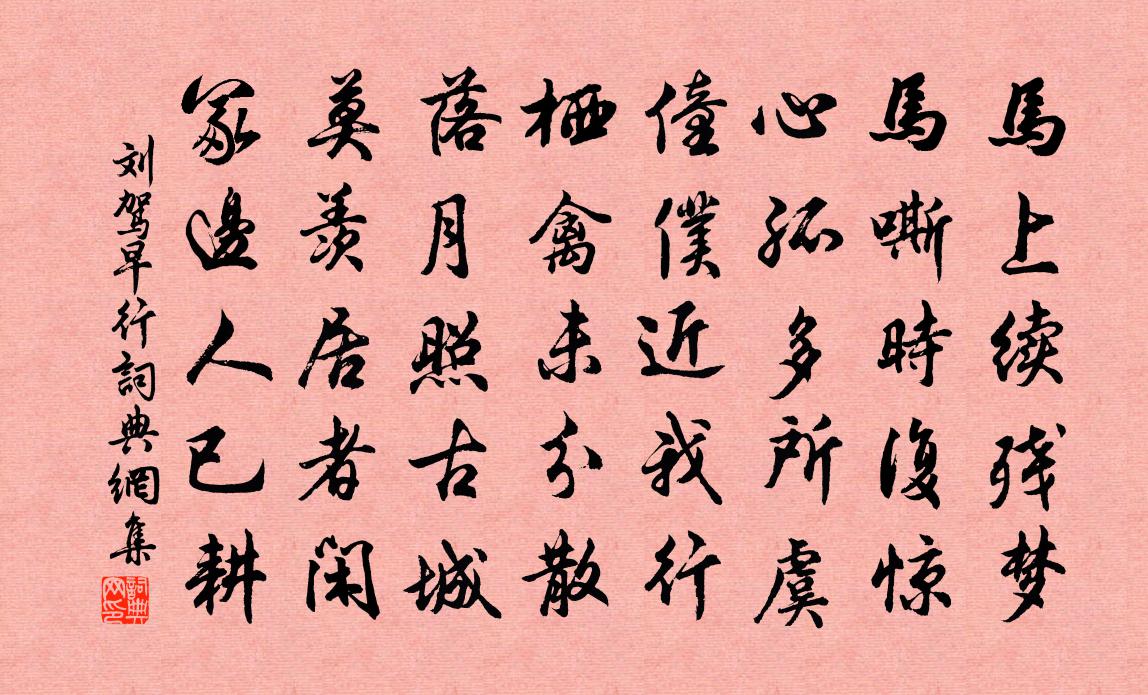 馬上续残梦
馬嘶時復惊
心孤多所虞
僮僕近我行
栖禽未分散
落月照古城
莫羡居者闲
冢邊人已耕
刘驾早行詞典網集
詞典网印